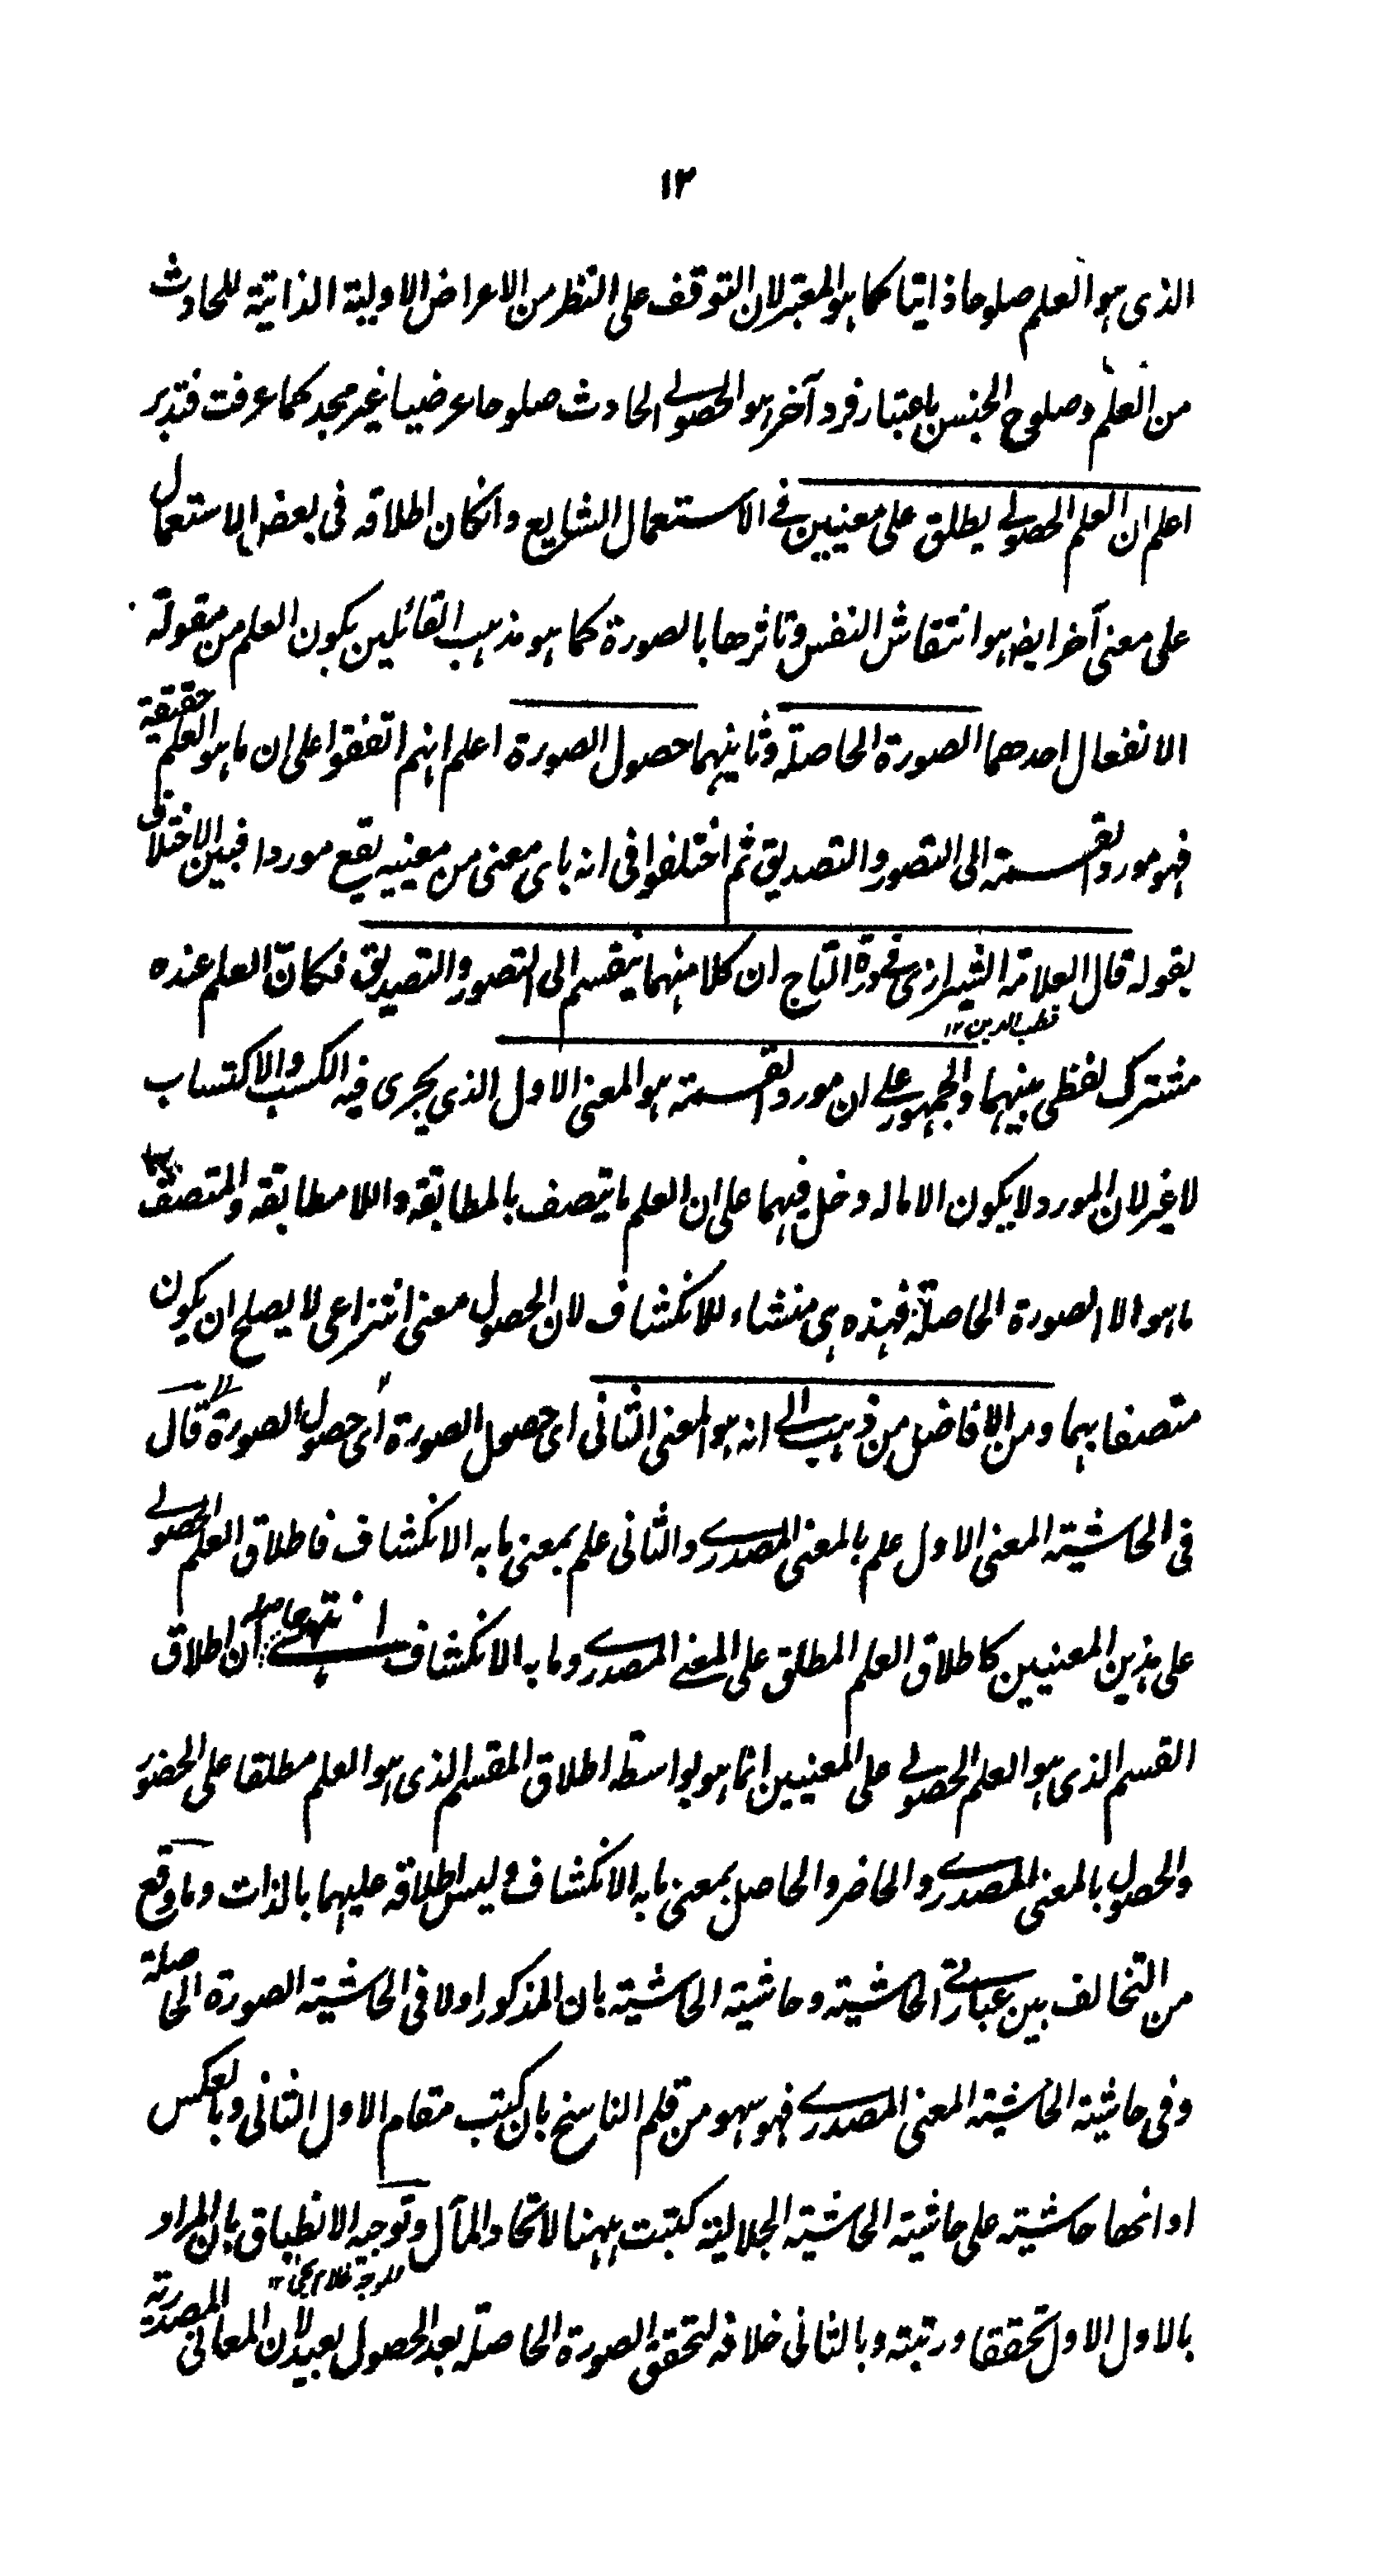 ١٣
الذی ہو العلم صلوحا ذاتیا کما ہو المعتبر لان التوقف علی النظر من الاعراض الاولیة الذاتیة للحادث
من العلم وصلوح الجنس باعتبار فرد آخر ہو الحصولے الحادث صلوحا عرضیا غیر مجد کما عرفت فتدبر
اعلم ان العلم الحصولے یطلق علی معنیین فے الاستعمال الشایع وانکان اطلاقہ فی بعض الاستعمال
علی معنی آخر ایضا ہو انتقاش النفس وتاثرھا بالصورة کما ہو مذہب القائلین بکون العلم من مقولة
الانفعال احدھما الصورة الحاصلة وثانیہما حصول الصورة اعلم انہم اتفقوا علی ان ما ہو العلم حقیقة
فہو مورد القسمة الی التصور والتصدیق ثم اختلفوا فی انہ بای معنی من معنییہ یقع موردا فبین الاختلاف
بقولہ قال العلامة الشیرازی فی درة التاج ان کلا منہما ینقسم الی التصور والتصدیق فکان العلم عندہ
قطب الدین ١٢
مشترک لفظی بینہما والجمہور علے ان مورد القسمة ہو المعنی الاول الذی یجری فیہ الکسب والاکتساب
لا غیر لان المورد لا یکون الا مالہ دخل فیہما علی ان العلم ما یتصف بالمطابقة واللامطابقة والمتصف بہما
ما ہو الا الصورة الحاصلة فہذہ ہی منشاء للانکشاف لان الحصول معنی انتزاعی لا یصلح ان یکون
متصفا بہما ومن الافاضل من ذہب الے انہ ہو المعنی الثانی ای حصول الصورة ای حصول الصورة قال
فی الحاشیة المعنی الاول علم بالمعنی المصدرے والثانی علم بمعنی ما بہ الانکشاف فاطلاق العلم الحصولے
علی ہذین المعنیین کاطلاق العلم المطلق علی المعنے المصدرے وما بہ الانکشاف انتہے حاصلہ ان اطلاق
القسم الذی ہو العلم الحصولے علی المعنیین انما ہو بواسطة اطلاق المقسم الذی ہو العلم مطلقا علی الحضور
والحصول بالمعنی المصدرے والحاضر والحاصل بمعنی ما بہ الانکشاف ولیس اطلاقہ علیہما بالذات وما وقع
من التخالف بین عبارتے الحاشیة وحاشیة الحاشیة بان المذکور اولا فی الحاشیة الصورة الحاصلة
وفی حاشیة الحاشیة المعنی المصدرے فہو سہو من قلم الناسخ بان کتب مقام الاول الثانی وبالعکس
او انھا حاشیة علی حاشیة الحاشیة الجلالیة کتبت ہہنا لاتحاد المآل وتوجیہ الانطباق بان المراد
بالاول الاول تحققا ورتبة وبالثانی خلافہ لتحقق الصورة الحاصلة بعد الحصول بعید لان المعانی المصدریة